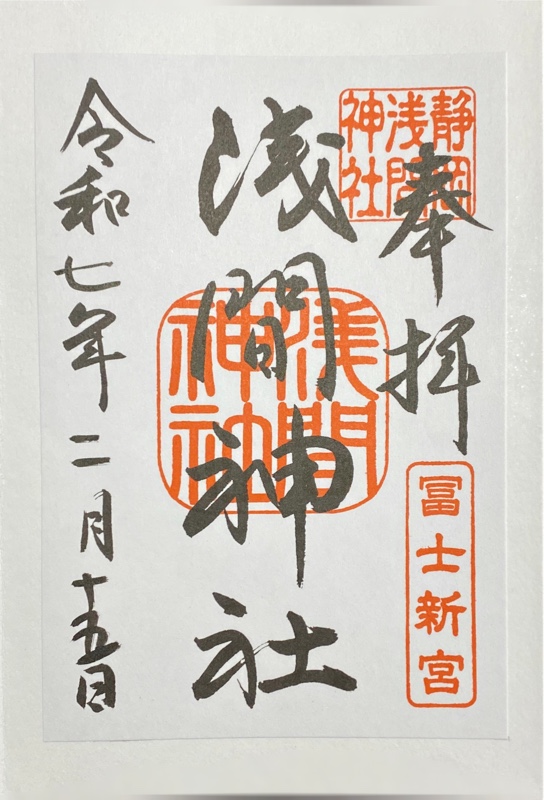 奉拝
静岡
浅間
神社
冨士新宮
浅間神社
浅間
神社
令和七年二月十五日